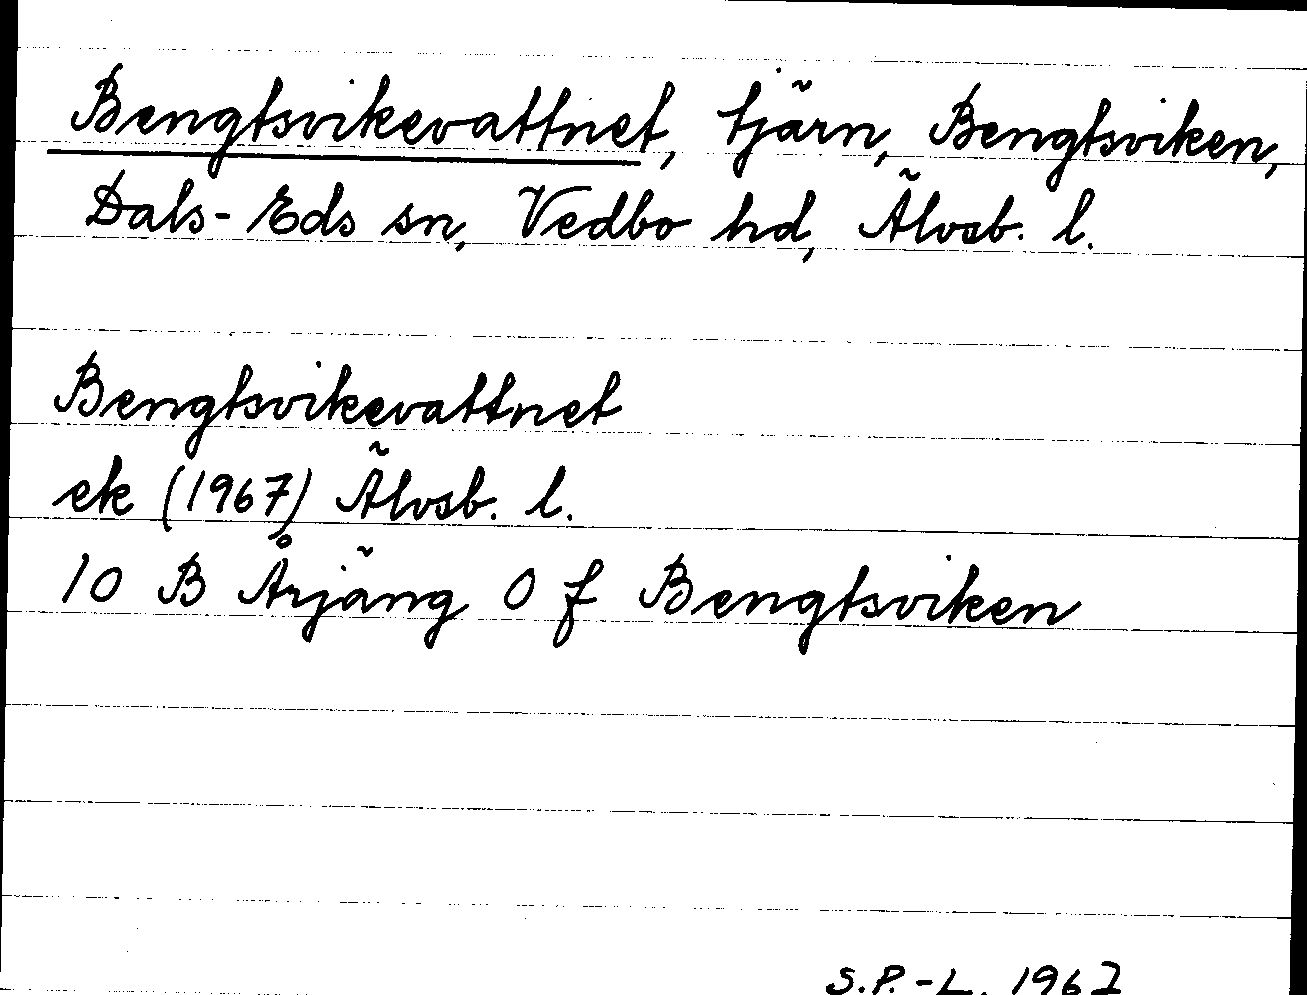 Bengtsvikevattnet, tjärn, Bengtsviken,
Dals-Eds sn, Vedbo hd, Älvsb. l.
Bengtsvikevattnet
ek (1967) Älvsb. l.
10 B Årjäng 0 f Bengtsviken
S.P.-L. 1967